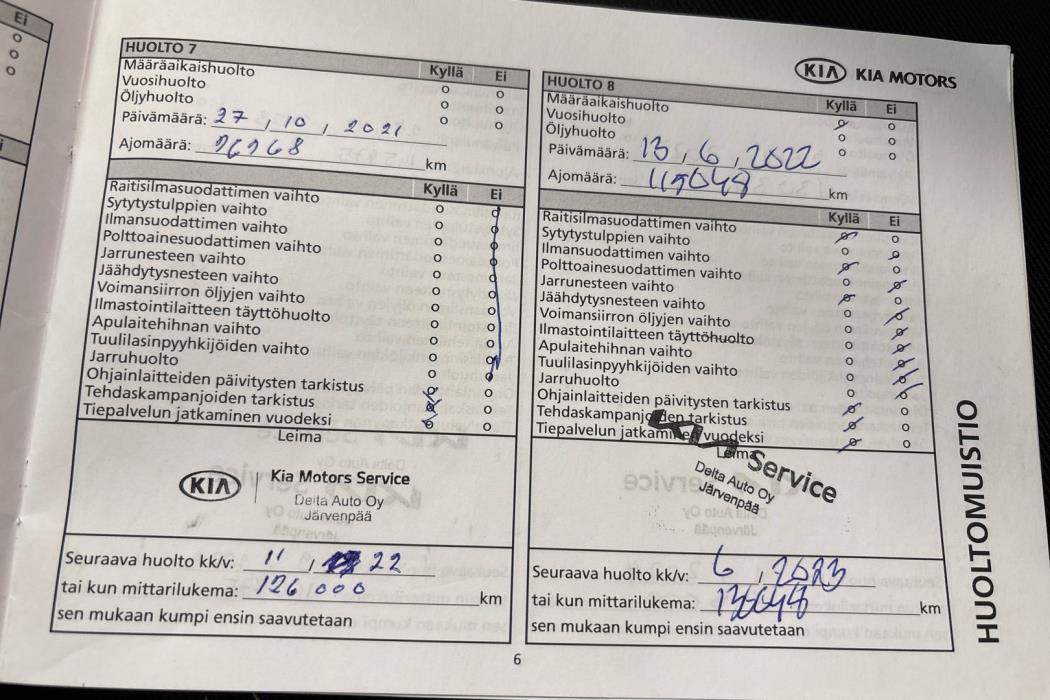 Ei
HUOLTO 7
Kyllä Ei
Määräaikaishuolto
Vuosihuolto
Öljyhuolto
Päivämäärä: 27, 10, 2021
Ajomäärä: km
Kyllä Ei
Raitisilmasuodattimen vaihto
Sytytystulppien vaihto
Ilmansuodattimen vaihto
Polttoainesuodattimen vaihto
Jarrunesteen vaihto
Jäähdytysnesteen vaihto
Voimansiirron öljyjen vaihto
Ilmastointilaitteen täyttöhuolto
Apulaitehihnan vaihto
Tuulilasinpyyhkijöiden vaihto
Jarruhuolto
Ohjainlaitteiden päivitysten tarkistus
Tehdaskampanjoiden tarkistus
Tiepalvelun jatkaminen vuodeksi
Leima
KIA Kia Motors Service
Delta Auto Oy
Järvenpää
Seuraava huolto kk/v: 11, 22
tai kun mittarilukema: 126000 km
sen mukaan kumpi ensin saavutetaan
KIA KIA MOTORS
HUOLTO 8
Kyllä Ei
Määräaikaishuolto
Vuosihuolto
Öljyhuolto
Päivämäärä: 13, 6, 2022
Ajomäärä: 115048 km
Kyllä Ei
Raitisilmasuodattimen vaihto
Sytytystulppien vaihto
Ilmansuodattimen vaihto
Polttoainesuodattimen vaihto
Jarrunesteen vaihto
Jäähdytysnesteen vaihto
Voimansiirron öljyjen vaihto
Ilmastointilaitteen täyttöhuolto
Apulaitehihnan vaihto
Tuulilasinpyyhkijöiden vaihto
Jarruhuolto
Ohjainlaitteiden päivitysten tarkistus
Tehdaskampanjoiden tarkistus
Tiepalvelun jatkaminen vuodeksi
Leima
Service
Delta Auto Oy
Järvenpää
Seuraava huolto kk/v: 6, 2023
tai kun mittarilukema: km
sen mukaan kumpi ensin saavutetaan
HUOLTOMUISTIO
6